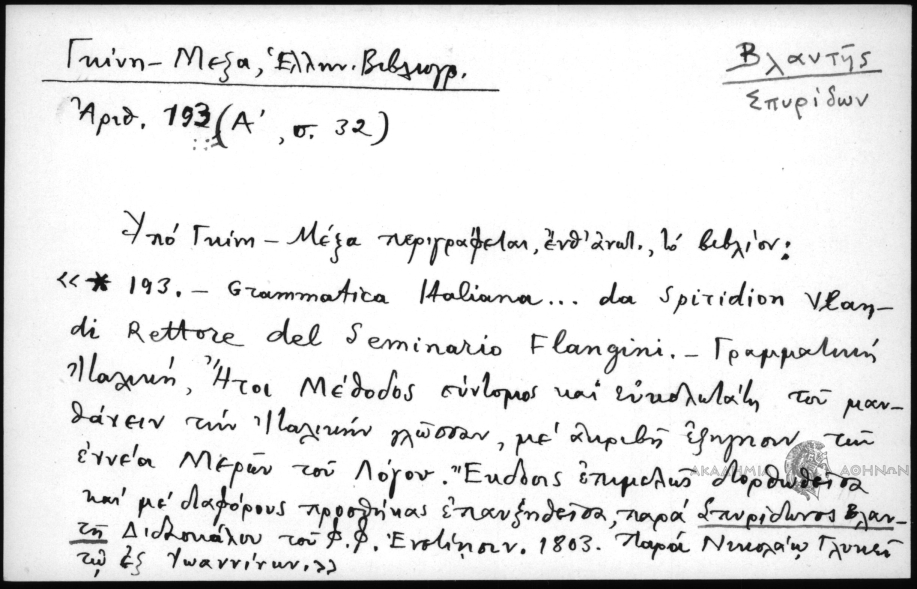 Γκίνη – Μέξα, Ἑλλην. Βιβλιογρ.
Βλαντῆς
Σπυρίδων
Ἀριθ. 193 (Α', σ. 32)
Ὑπό Γκίνη – Μέξα περιγράφεται, ἔνθ' ἀνωτ., τό βιβλίον:
«* 193. – Grammatica Italiana... da Spiridion Vlan-
di Rettore del Seminario Flangini. – Γραμματική
Ἰταλική, Ἤτοι Μέθοδος σύντομος καί εὐκολωτάτη τοῦ μαν-
θάνειν τήν Ἰταλικήν γλῶσσαν, μέ ἀκριβῆ ἐξήγησιν τῶν
ἐννέα Μερῶν τοῦ Λόγου. Ἔκδοσις ἐπιμελῶς διορθωθεῖσα
ΑΚΑΔΗΜΙΑ ΑΘΗΝΩΝ
καί μέ διαφόρους προσθήκας ἐπαυξηθεῖσα, παρά Σπυρίδωνος Βλαν-
τῆ Διδασκάλου τοῦ Φ.Φ. Ἐνετίησιν. 1803. Παρά Νικολάῳ Γλυκεῖ
τῷ ἐξ Ἰωαννίνων.»